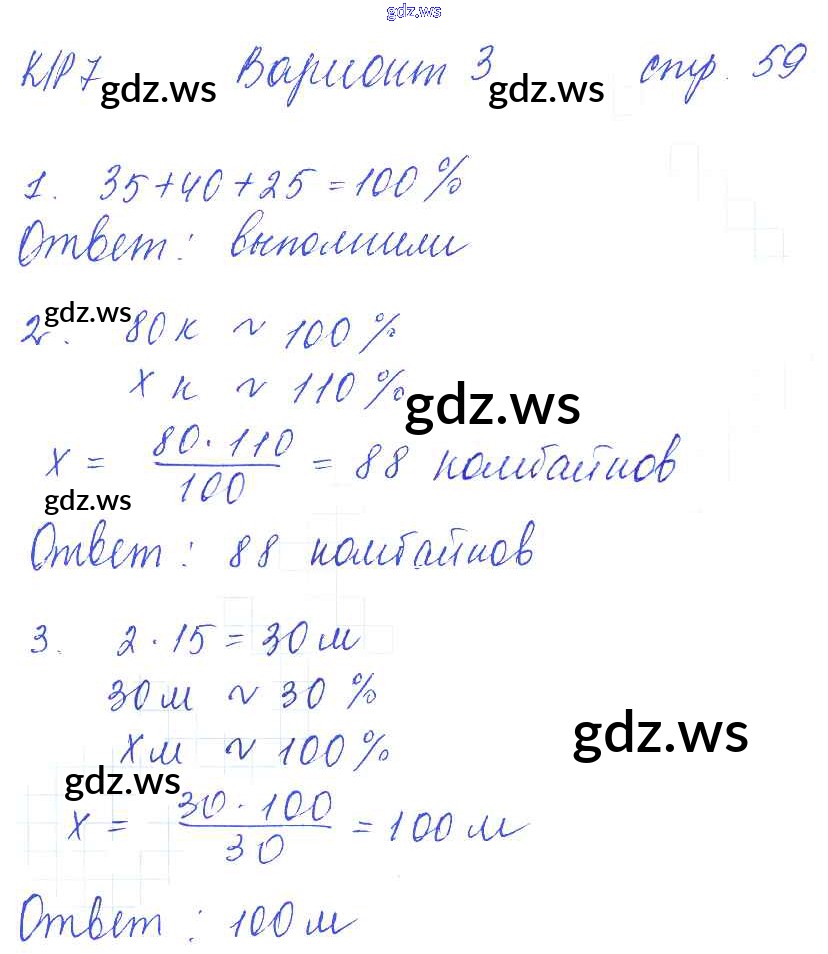 gdz.ws
К/Р 7 Вариант 3 стр. 59
gdz.ws gdz.ws
1. 35+40+25=100%
Ответ: выполнили
gdz.ws
2. 80 к ~ 100%
х к ~ 110%
gdz.ws
х = 80·110/100 = 88 комбайнов
gdz.ws
Ответ: 88 комбайнов
3. 2·15=30 м
30 м ~ 30%
х м ~ 100%
gdz.ws
gdz.ws
х = 30·100/30 = 100 м
Ответ: 100 м